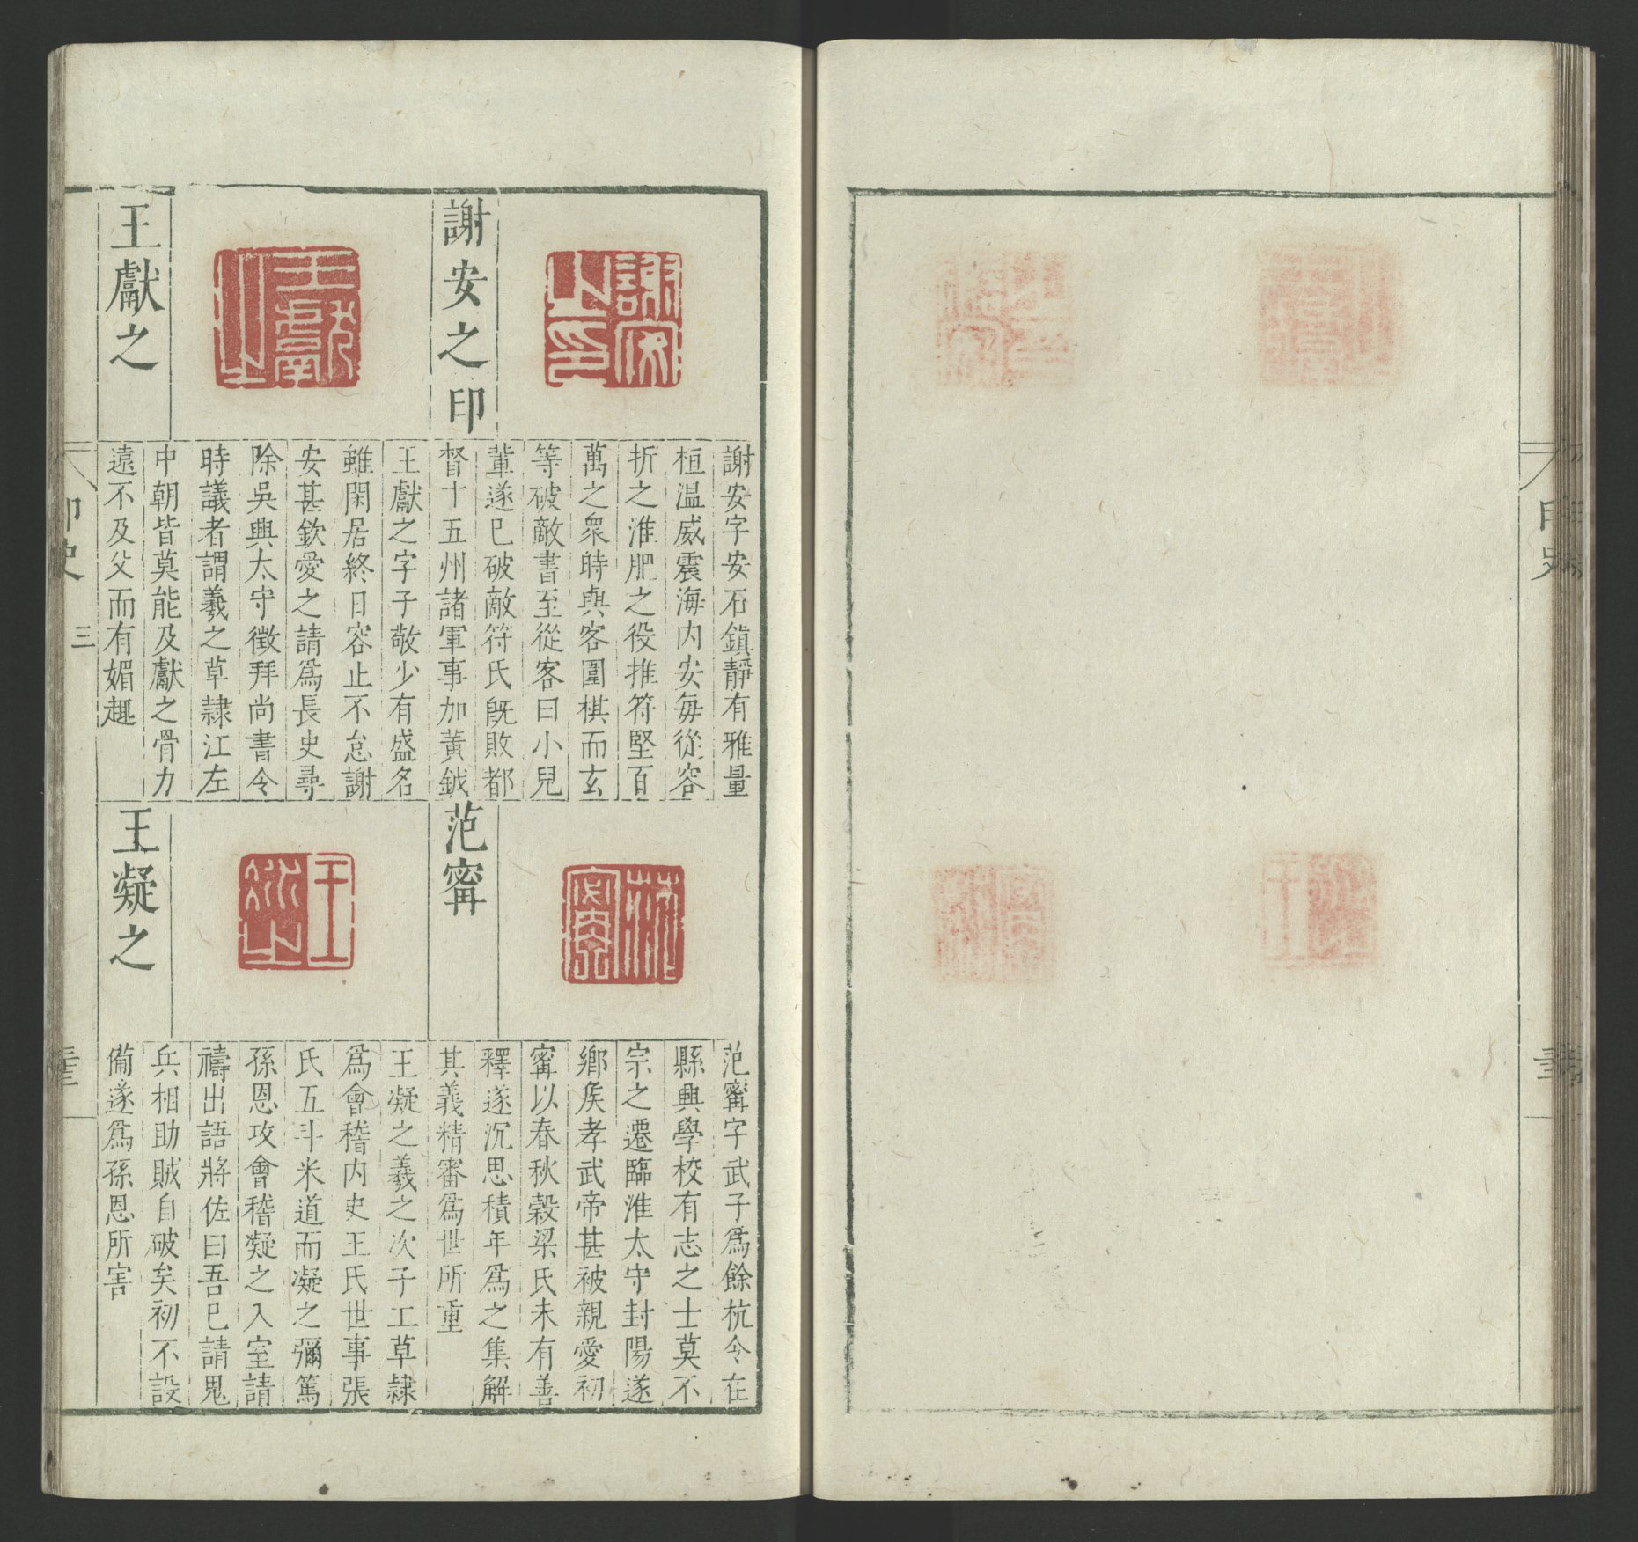 謝安之印
謝安字安石鎮靜有雅量
桓温威震海内安每從容
折之淮肥之役推符堅百
萬之衆時與客圍棋而玄
等破敵書至從客曰小兒
輩遂已破敵符氏既敗都
督十五州諸軍事加黃鉞
王獻之
王獻之字子敬少有盛名
雖閑居終日容止不怠謝
安甚欽愛之請爲長史尋
除吳興太守徵拜尚書令
時議者謂羲之草隸江左
中朝皆莫能及獻之骨力
遠不及父而有媚趣
范寗
范寗字武子爲餘杭令在
縣興學校有志之士莫不
宗之遷臨淮太守封陽遂
鄉矦孝武帝甚被親愛初
寗以春秋穀梁氏未有善
釋遂沉思積年爲之集解
其義精審爲世所重
王凝之
王凝之羲之次子工草隸
爲會稽内史王氏世事張
氏五斗米道而凝之彌篤
孫恩攻會稽凝之入室請
禱出語將佐曰吾已請鬼
兵相助賊自破矣初不設
備遂爲孫恩所害
印史
三